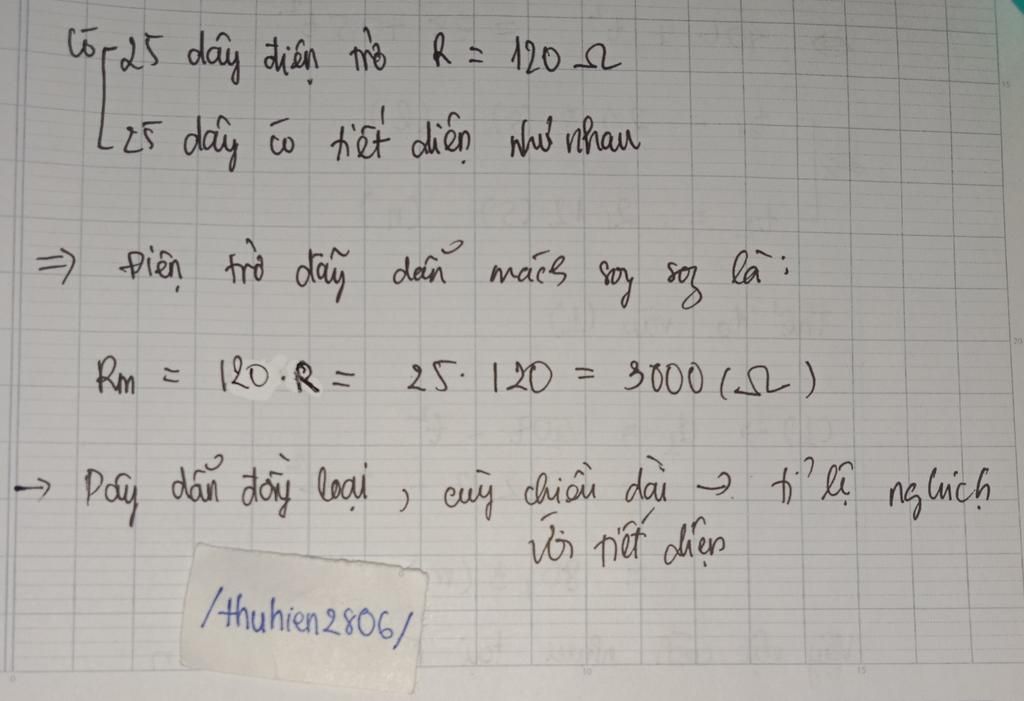 Có 25 dây điện trở R = 120 Ω
25 dây có tiết diện như nhau
=> Điện trở dây dẫn mắc sog sog là:
Rm = 120.R = 25.120 = 3000 (Ω)
→ Dây dẫn đồg loại, cùg chiều dài → tỉ lệ nghịch
với tiết diện
/thuhien2806/